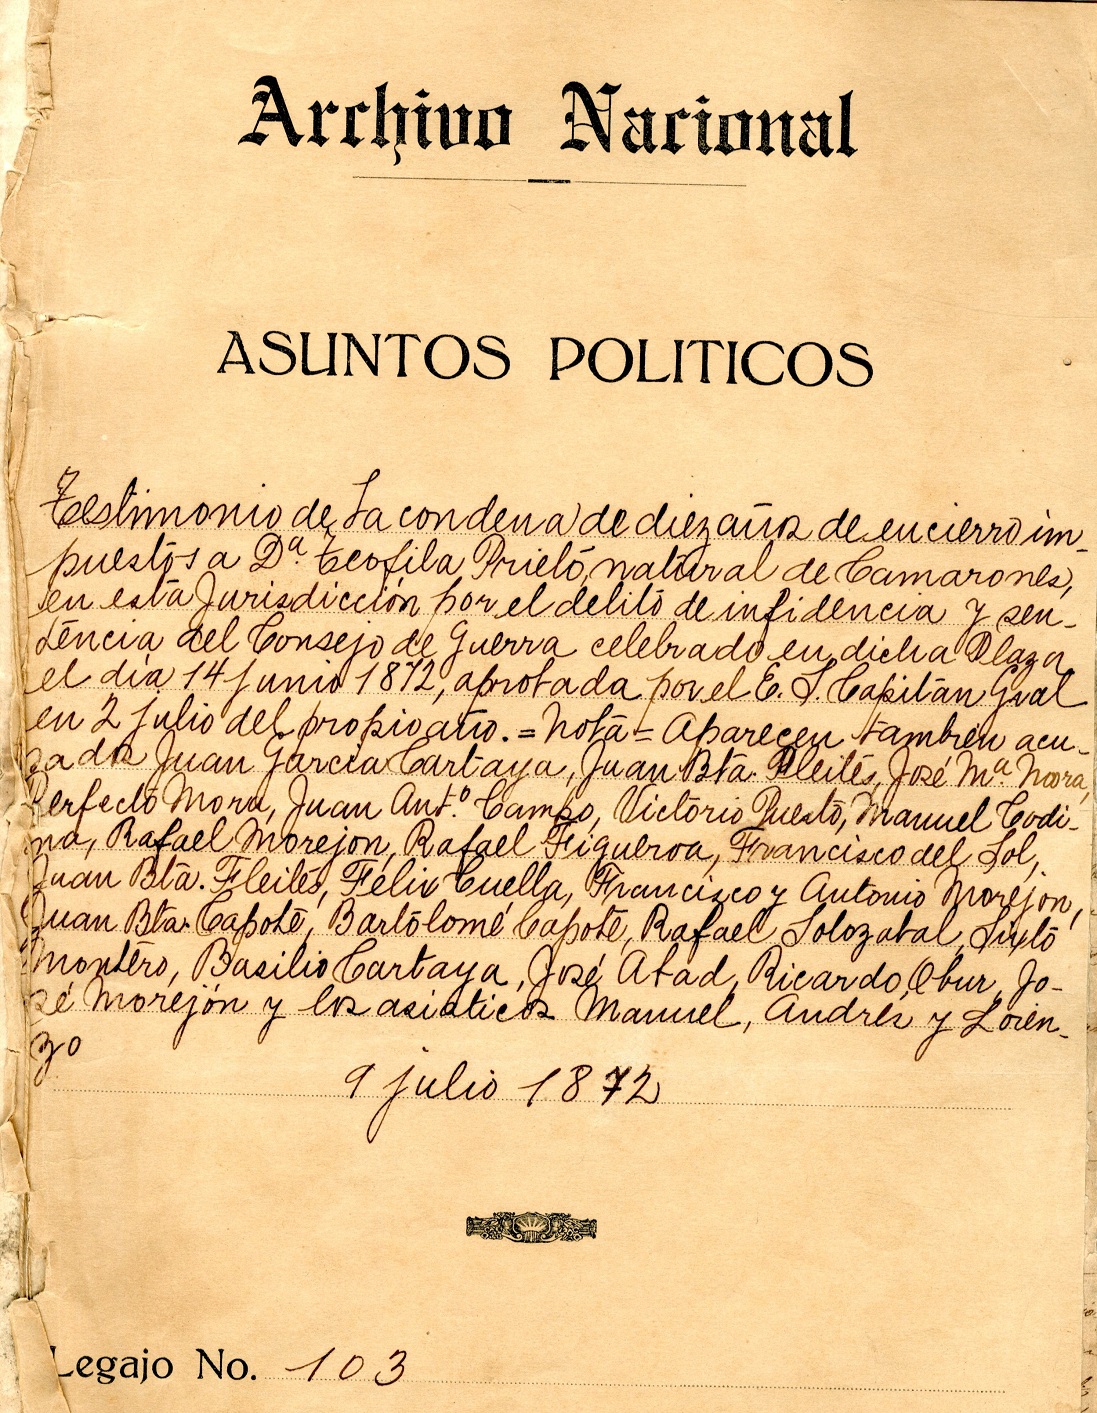 Archivo Nacional
ASUNTOS POLITICOS
Testimonio de la condena de diez años de encierro im-
puestos a Dª. Teofila Prieto, natural de Camarones,
en esta Jurisdicción por el delito de infidencia y sen-
tencia del Consejo de Guerra celebrado en dicha Plaza
el día 14 junio 1872, aprobada por el E. S. Capitán Gral
en 2 julio del propio año. = Nota = Aparecen también acu-
sados Juan García Cartaya, Juan Bta. Fleites, José Mª Mora,
Perfecto Mora, Juan Antº. Campo, Victorio Puesto, Manuel Codi-
na, Rafael Morejon, Rafael Figueroa, Francisco del Sol,
Juan Bta. Fleites, Felix Cuella, Francisco y Antonio Morejón,
Juan Bta. Capote, Bartolomé Capote, Rafael Solozabal, Sixto
Montero, Basilio Cartaya, José Abad, Ricardo Jo-
sé Morejón y los asiaticos Manuel, Andrés y Loren-
zo
9 julio 1872
Legajo No. 103